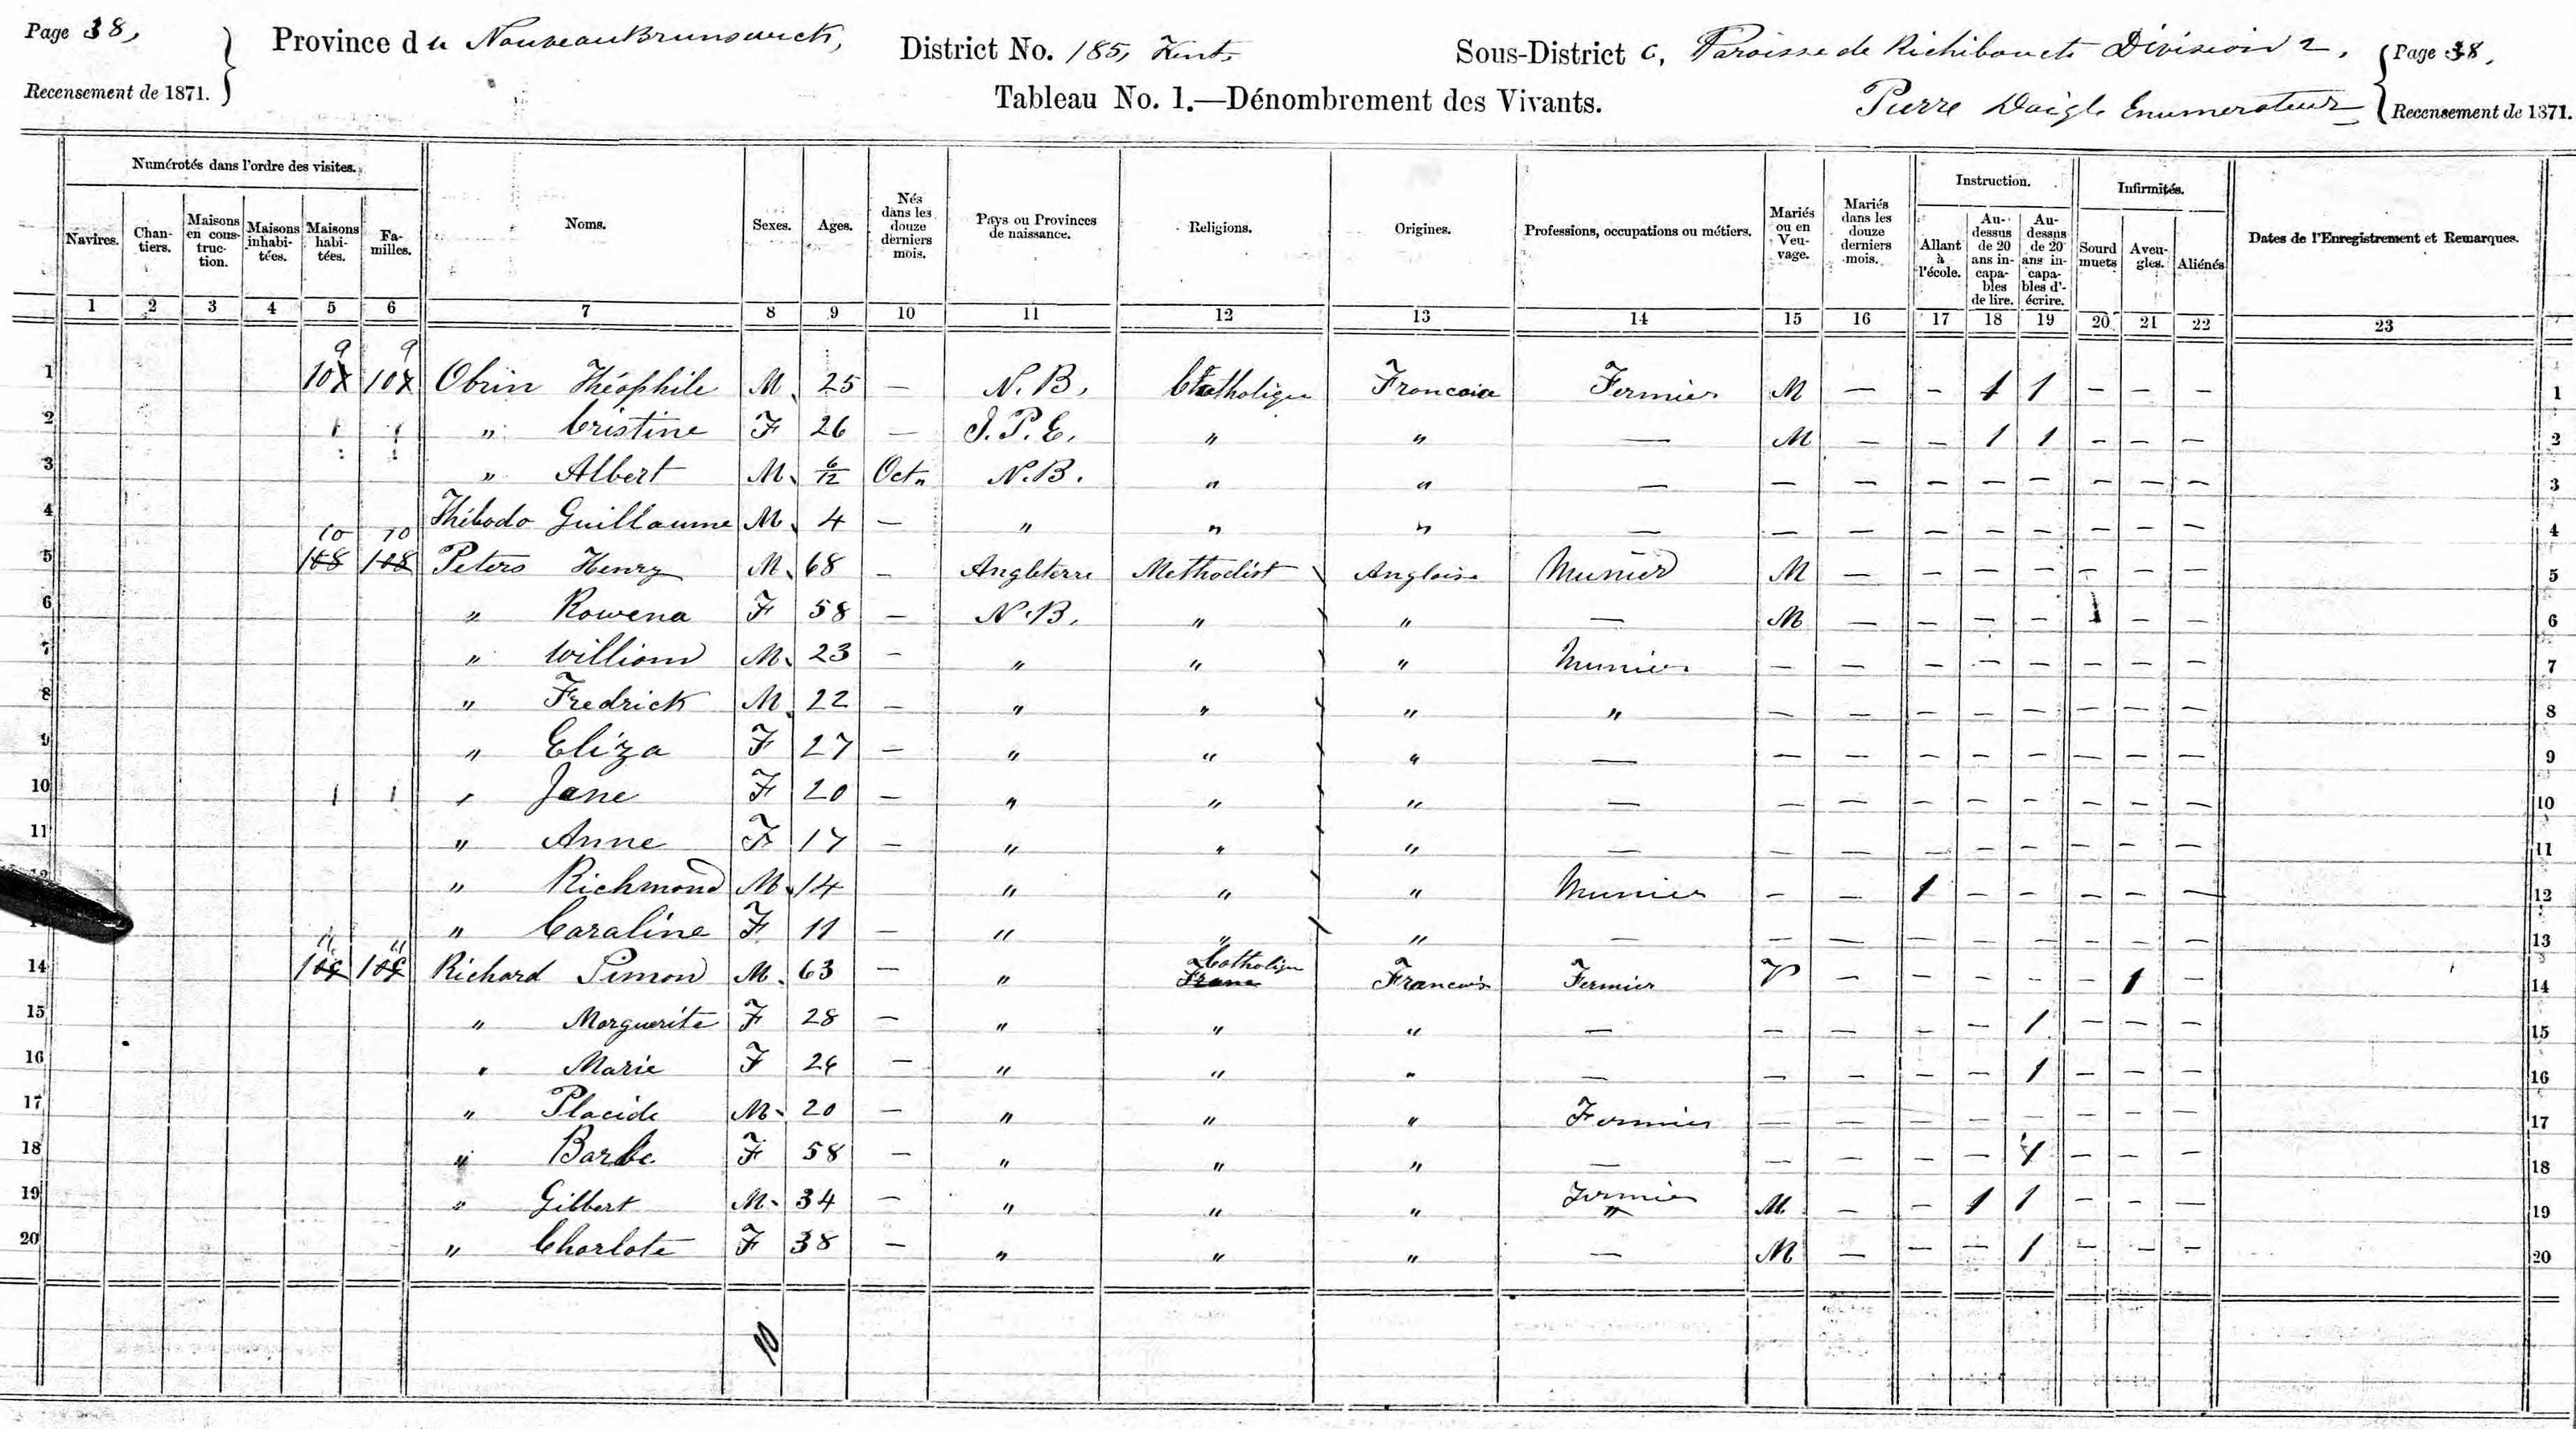 Page 38,
Recensement de 1871.
Province du Nouveau Brunswick,
District No. 185, Kent,
Sous-District C, Paroisse de Richibouct Division 2,
Page 38,
Tableau No. 1.—Dénombrement des Vivants.
Pierre Daigle Enumerateur
Recensement de 1871.
Numérotés dans l'ordre des visites.
Navires. Chantiers. Maisons en construction. Maisons inhabitées. Maisons habitées. Familles. Noms. Sexes. Ages. Nés dans les douze derniers mois. Pays ou Provinces de naissance. Religions. Origines. Professions, occupations ou métiers. Mariés ou en Veuvage. Mariés dans les douze derniers mois. Instruction. Allant à l'école. Au-dessus de 20 ans incapables de lire. Au-dessus de 20 ans incapables d'écrire. Infirmités. Sourd muets Aveugles. Aliénés Dates de l'Enregistrement et Remarques.
1 2 3 4 5 6 7 8 9 10 11 12 13 14 15 16 17 18 19 20 21 22 23
9 9
1 107 107 Obrin Théophile M. 25 — N. B. Catholique Francaise Fermier M — — 1 1 — — — 1
2 " Cristine F 26 — I. P. E. " " — M — — 1 1 — — — 2
3 " Albert M. 6/12 Oct. N. B. " " — — — — — — — — — 3
4 Thibodo Guillaume M. 4 — " " " — — — — — — — — — 4
10 10
5 108 108 Peters Henry M. 68 — Angleterre Methodist Anglaise Munier M — — — — — — — 5
6 " Rowena F 58 — N. B. " " — M — — — — 1 — — 6
7 " William M. 23 — " " " Munier — — — — — — — — 7
8 " Fredrick M. 22 — " " " " — — — — — — — — 8
9 " Eliza F 27 — " " " — — — — — — — — — 9
10 " Jane F 20 — " " " — — — — — — — — — 10
11 " Anne F 17 — " " " — — — — — — — — — 11
" Richmond M. 14 " " " Munier — — 1 — — — — — 12
" Caraline F 11 — " " " — — — — — — — — — 13
11 11 Catholique
14 109 109 Richard Simon M. 63 — " Franc Francais Fermier V — — — — — 1 — 14
15 " Marguerite F 28 — " " " — — — — — 1 — — — 15
16 " Marie F 26 — " " " — — — — — 1 — — — 16
17 " Placide M. 20 — " " " Fermier — — — — — — — — 17
18 " Barbe F 58 — " " " — — — — — 1 — — — 18
19 " Gilbert M. 34 — " " " Fermier " M — — 1 1 — — — 19
20 " Charlote F 38 — " " " — M — — — 1 — — — 20
10